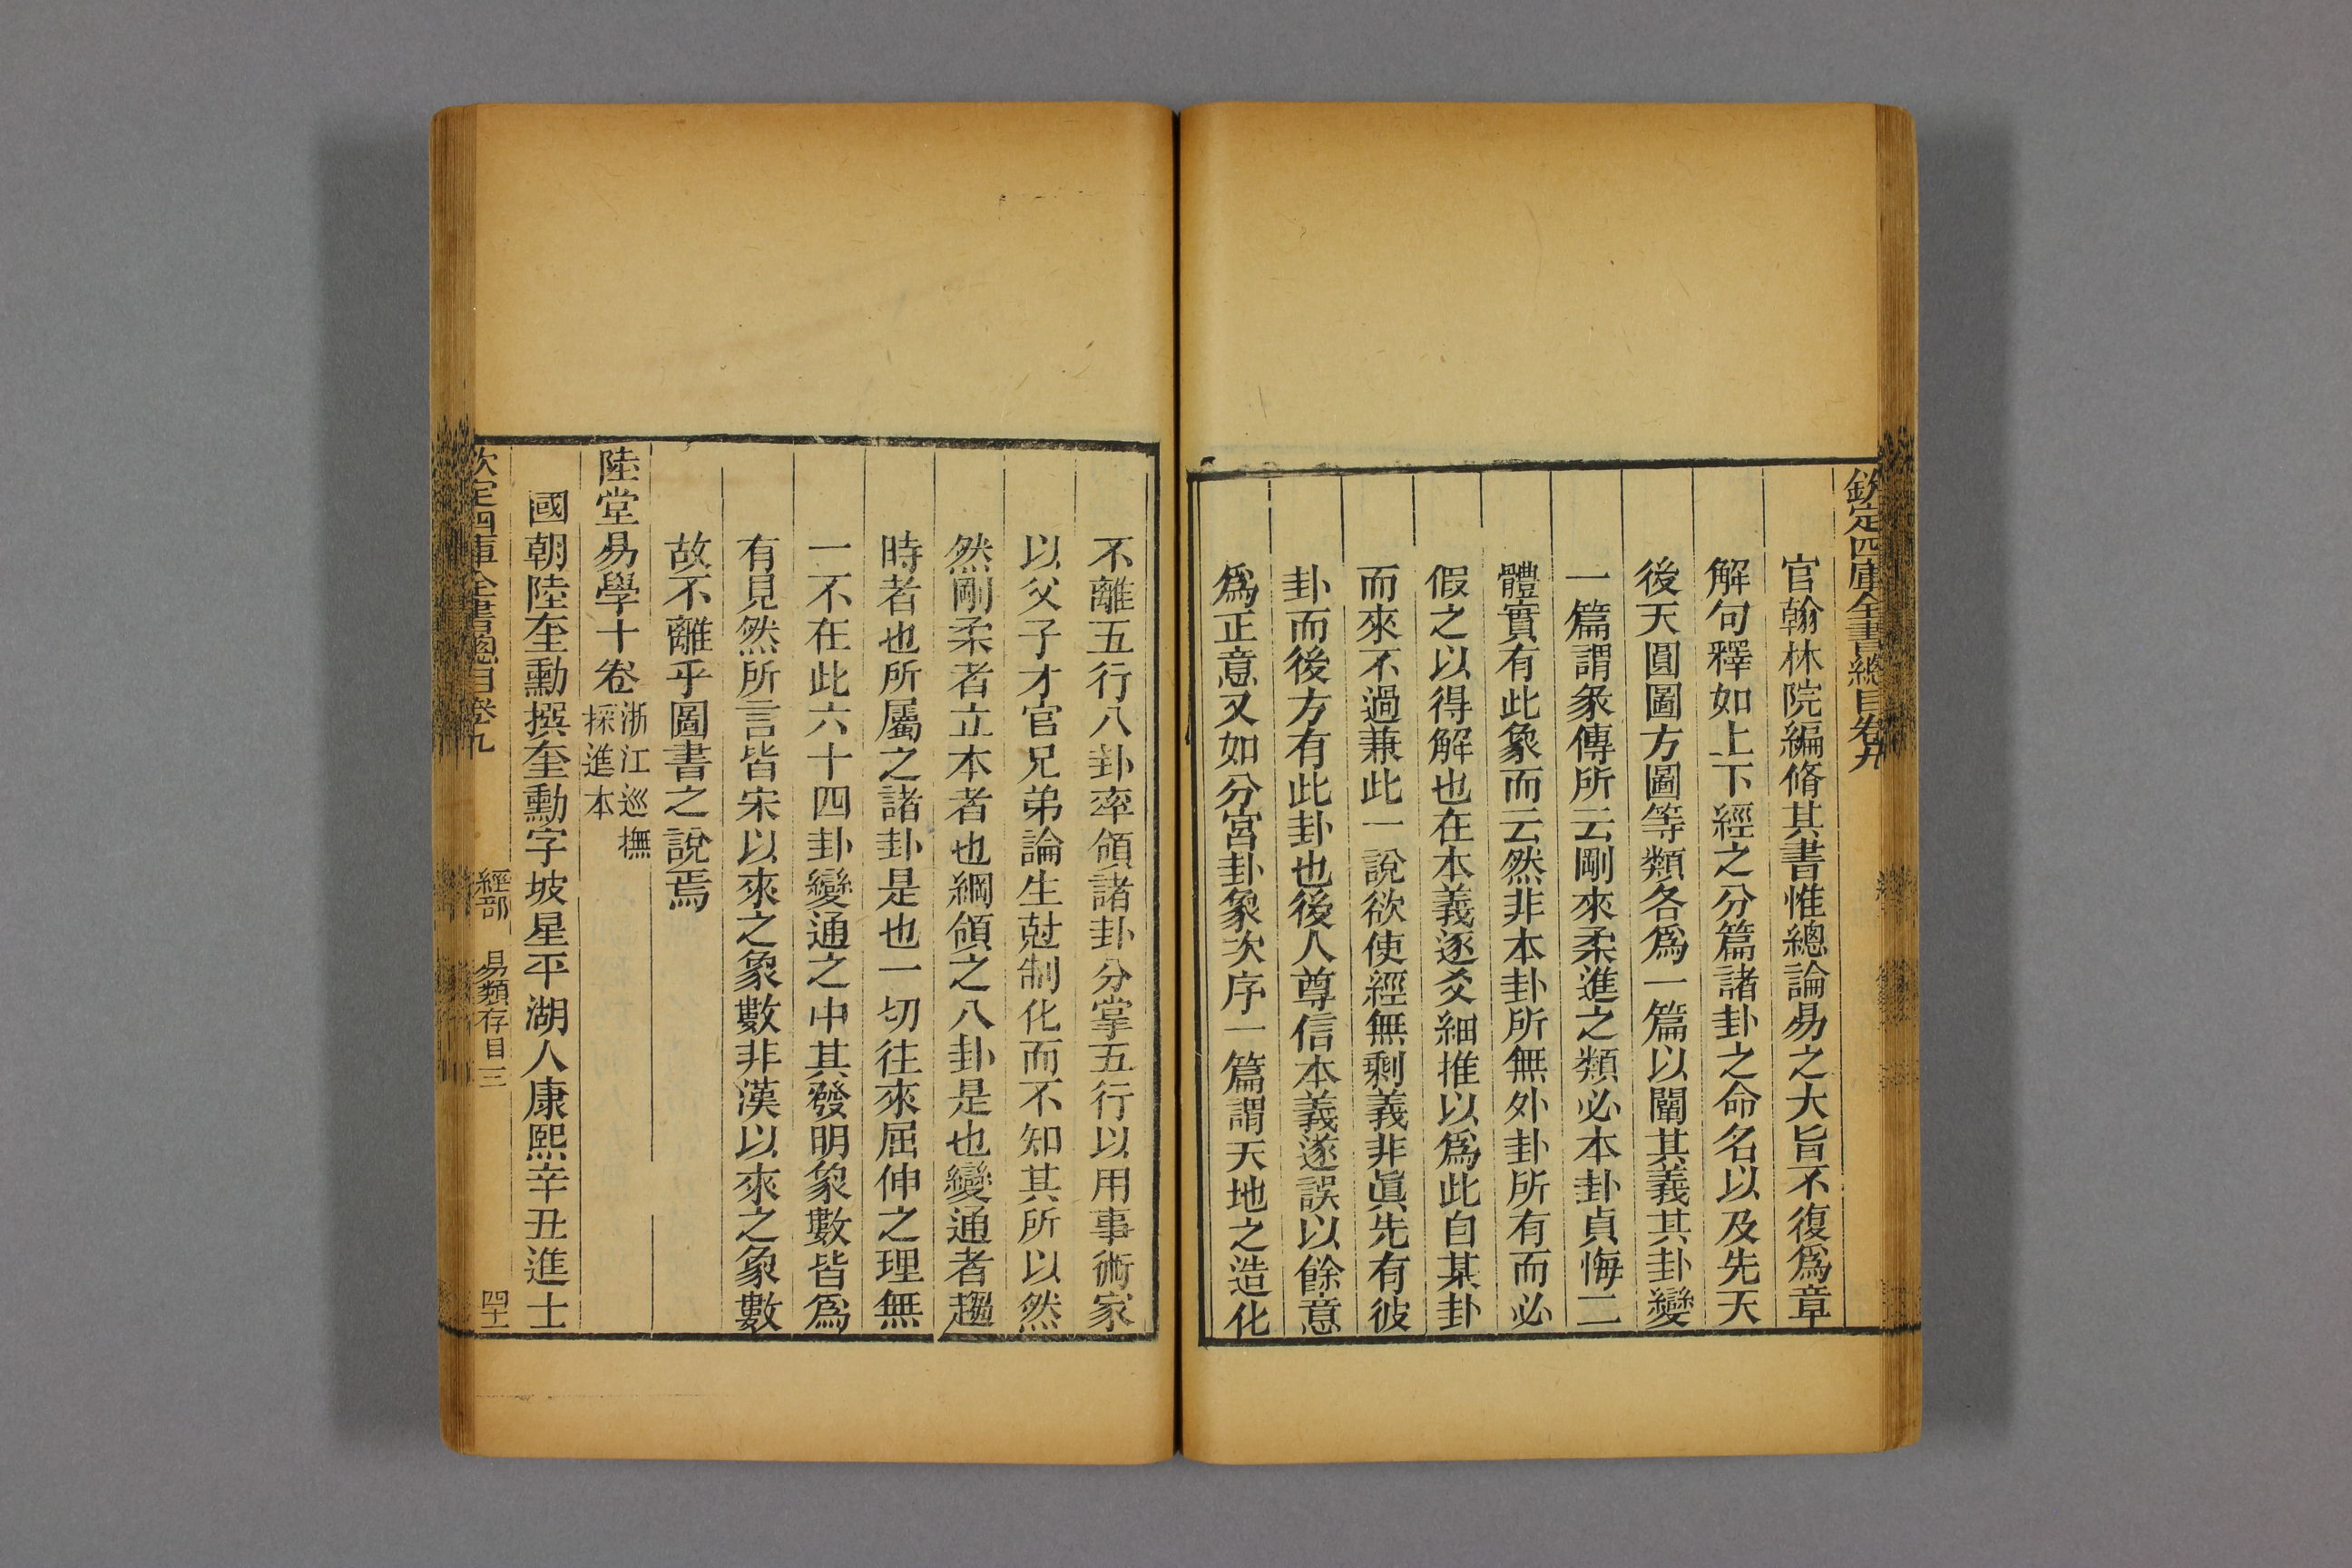 欽定四庫全書總目卷九
官翰林院編脩其書惟總論易之大旨不復爲章
解句釋如上下經之分篇諸卦之命名以及先天
後天圓圖方圖等類各爲一篇以闡其義其卦變
一篇謂彖傳所云剛來柔進之類必本卦貞悔二
體實有此象而云然非本卦所無外卦所有而必
假之以得解也在本義逐爻細推以爲此自某卦
而來不過兼此一說欲使經無剩義非眞先有彼
卦而後方有此卦也後人尊信本義遂誤以餘意
爲正意又如分宮卦象次序一篇謂天地之造化
不離五行八卦率領諸卦分掌五行以用事術家
以父子才官兄弟論生尅制化而不知其所以然
然剛柔者立本者也綱領之八卦是也變通者趨
時者也所屬之諸卦是也一切往來屈伸之理無
一不在此六十四卦變通之中其發明象數皆爲
有見然所言皆宋以來之象數非漢以來之象數
故不離乎圖書之說焉
陸堂易學十卷 浙江巡撫
採進本
國朝陸奎勳撰奎勳字坡星平湖人康熙辛丑進士
欽定四庫全書總目卷九 經部 易類存目三 四十一